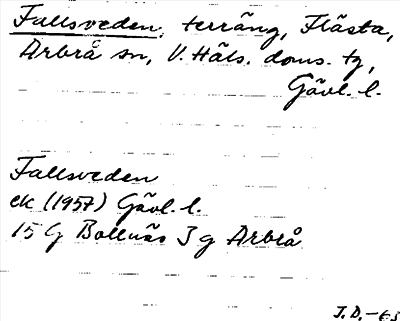 Fallsveden, terräng, Flästa,
Arbrå sn, V. Häls. doms. tg,
Gävl. l.
Fallsveden
ek (1957) Gävl. l.
15 G Bollnäs 3 g Arbrå
J.D.-63